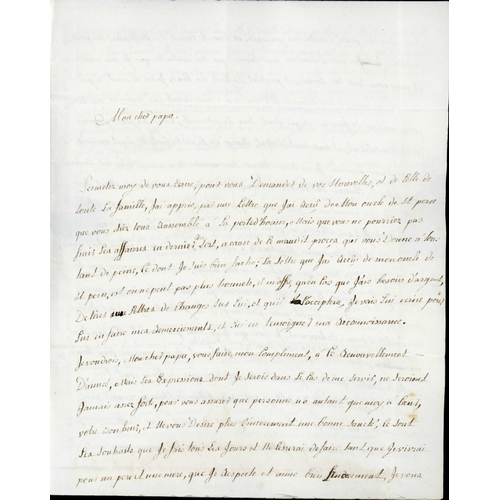 Mon cher papa.
Permetez moy de vous Ecrire, pour vous Demander de vos Nouvelles, et de Celle de
toute La famille, J'ai appris, par une Lettre que J'ai Recû de Mon oncle de St pern
que vous étiez tous Rassemblé a La Mais que vous ne pourriez pas
finir Les affaires en dernier a cause de Ce maudit procez qui vous Donne a tous
tant de peine, Ce dont Je Suis bien faché; La lettre que J'ai Recûs de mon oncle de
St pern, est on ne peut pas plus honnete, il m'offre, quen Cas que J'aie besoin d'argent,
De tirer une Lettres de Changes Sur Lui, et quil L'acceptera, Je vais Lui ecrire pour
Lui en faire mes Remerciements, et Lui en temoigner ma Reconnoissance.
Je voudrois, Mon cher papa, vous faire, mon Compliment, a Ce Renouvellement
D'année, Mais Les Expressions dont Je Serois dans Le Cas de me Servir, ne Seroient
Jamais assez forte, pour vous assurer que personne n'a autant que moy a Cœur,
votre bonheur, et Ne vous Desire plus Sincerement une bonne Santé; Ce Sont
Les Souhaits que Je fais tous Les Jours et Ne Cesserai de faire tant que Je vivrai
pour un pere et une mere, que Je Respecte et aime bien tendrement, Je vous